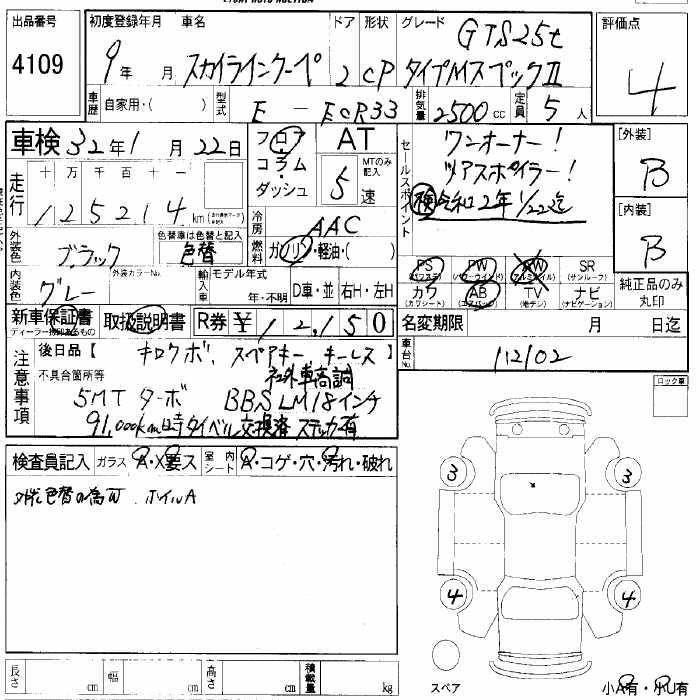 出品番号
4109
初度登録年月 車名 ドア 形状 グレード
9年 月 スカイラインクーペ 2 CP GTS25t
タイプMスペックⅡ
評価点
4
車歴 自家用・( ) 型式 E - ECR33 排気量 2500cc 定員 5人
車検 32年1月22日
フロア
コラム
ダッシュ
AT
MTのみ記入
5速
セールスポイント
ワンオーナー!
リアスポイラー!
検令和2年1/22迄
[外装]
B
[内装]
B
走行 十万千百十一
125214km
冷房 AAC
燃料 ガソリン・軽油・( )
外装色 ブラック
色替車は色替と記入
色替
外装カラーNo.
内装色 グレー
輸入車 モデル年式
年・不明 D車・並 右H・左H
PS (パワステ) PW (パワーウインド) AW (アルミホイル) SR (サンルーフ)
カワ (カワシート) AB (エアバッグ) TV (地デジ) ナビ (ナビゲーション)
純正品のみ丸印
新車保証書 取扱説明書 R券 ¥12,150
ディーラー捺印あるもの
名変期限 月 日迄
車台No. 112102
注意事項
後日品【 キロクボ、スペアキー、キーレス 】
不具合箇所等 社外車高調
5MT ターボ BBS LM18インチ
91,000km時タイベル交換済 ステッカ有
ロック車
検査員記入 ガラス A・X要ス 室内シート A・コゲ・穴・汚れ・破れ
外装色替の為W ホイルA
3 3
4 4
長さ cm 幅 cm 高さ cm 積載量 kg
スペア
小A有・小U有